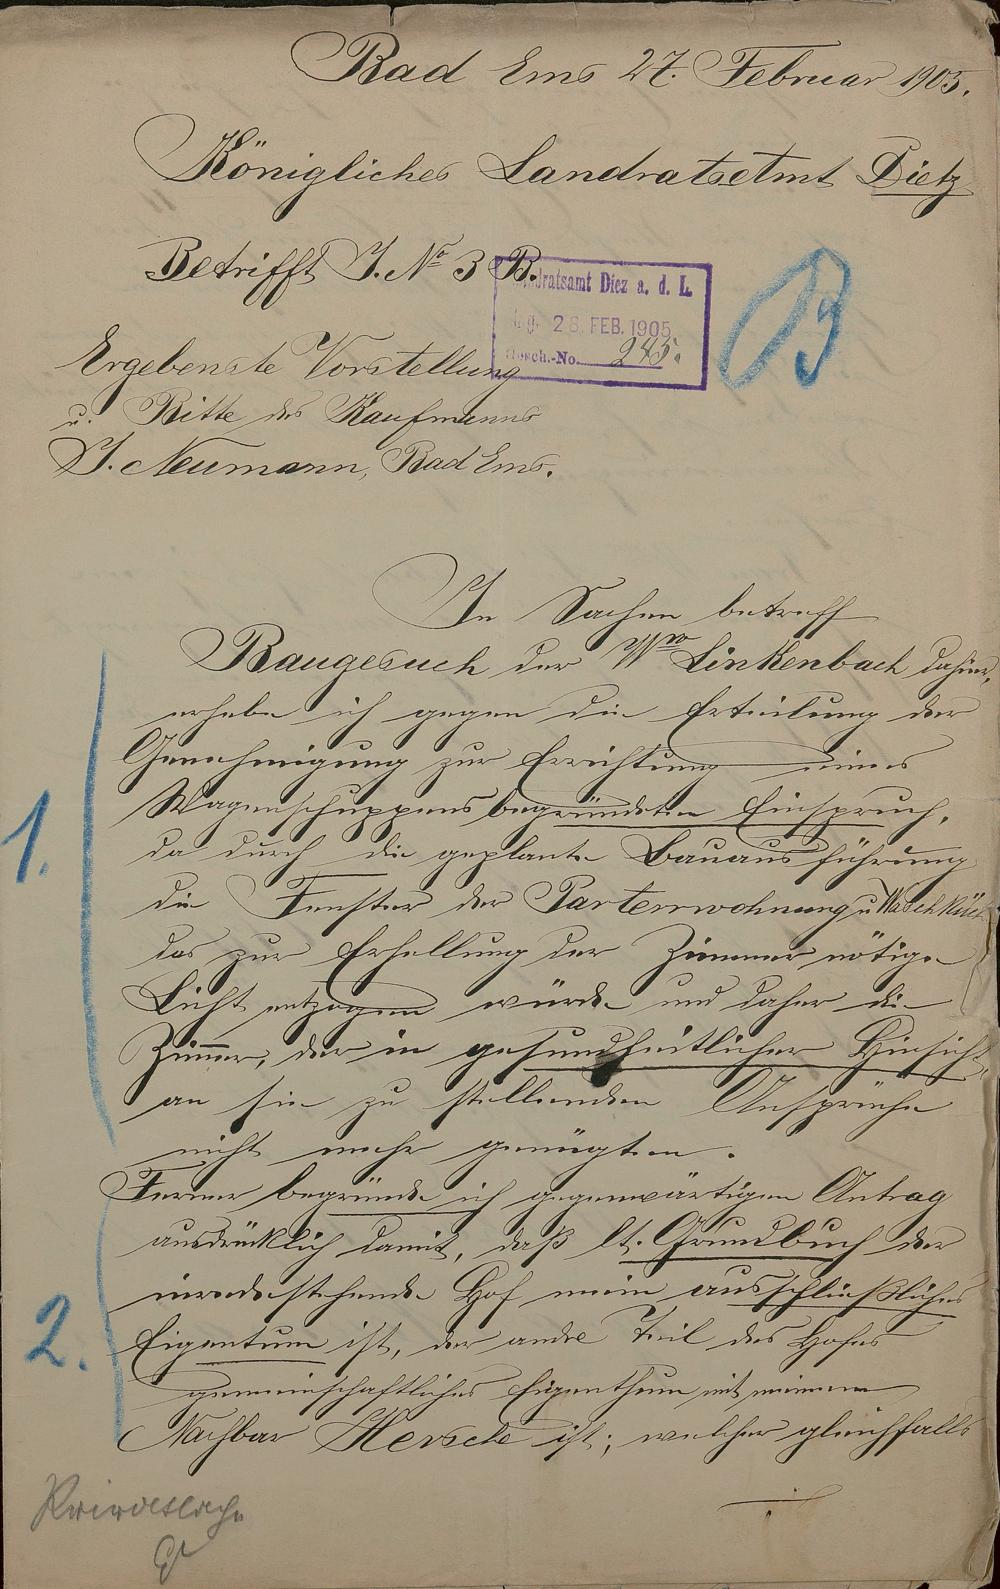 Bad Ems 27. Februar 1905.
Königliches Landratsamt Dietz
Betrifft J. No 3 B.
Landratsamt Diez a. d. L.
28. FEB. 1905
Gesch.-No. 245.
B
Ergebenste Vorstellung
u. Bitte des Kaufmanns
J. Neumann, Bad Ems.
In Sachen betreff
Baugesuch der Wwe Linkenbach dahier,
erhebe ich gegen die Erteilung der
Genehmigung zur Errichtung eines
Wagenschuppens begründeten Einspruch,
1.
da durch die geplante Bauausführung
die Fenster der Parterrwohnung u Waschküche
das zur Erhellung der Zimmer nötige
Licht entzogen würde und daher die
Zimmer, der in gesundheitlicher Hinsicht,
an sie zu stellenden Ansprüche
nicht mehr genügten.
Ferner begründe ich gegenwärtigen Antrag
ausdrücklich damit, daß lt. Grundbuch der
2.
stehende Hof mein ausschließliches
Eigentum ist, der andre Teil des Hofes
gemeinschaftliches Eigenthum mit meinem
Nachbar ist; welcher gleichfalls